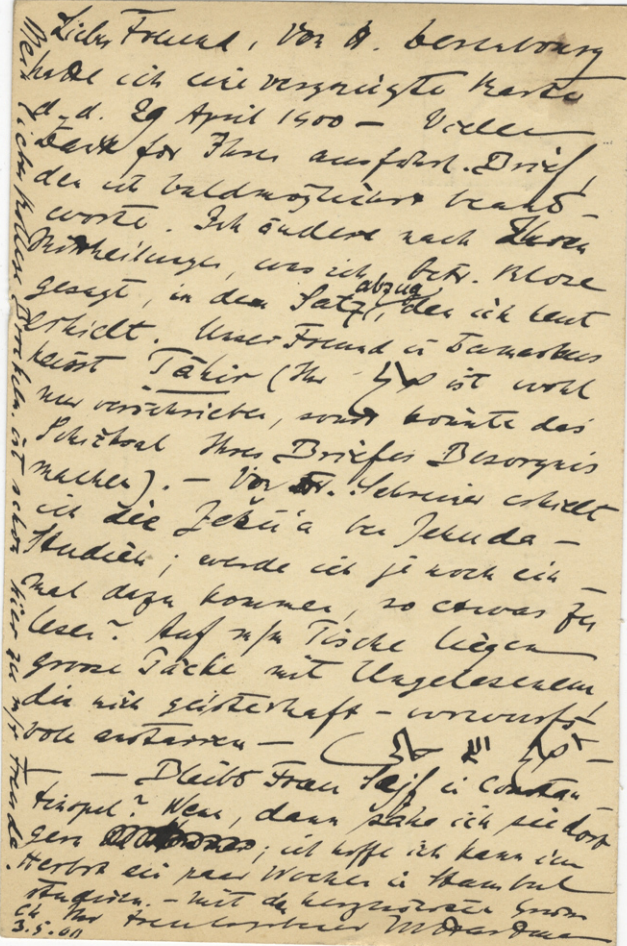 Lieber Freund, Von H. Derenbourg
habe ich eine vergnügte Karte
d. d. 29 April 1900 – Vielen
Dank für Ihren ausführl. Brief,
den ich baldmöglichst beant-
worte. Ich ändere nach Ihren
Mittheilungen, was ich betr. Kloze
gesagt, in dem Satzabzug, den ich heut
erhielt. Unser Freund in Damaskus
heisst Tāhir (Ihr ist wohl
nur verschrieben, sonst könnte das
Schicksal Ihres Briefes Besorgnis
machen). – Von Dr. Schreiner erhielt
ich die Jehuda –
Studien; werde ich je noch ein-
mal dazu kommen, so etwas zu
lesen? Auf m/m Tische liegen
grosse Säcke mit Ungelesenem
die mich geisterhaft – vorwurfs-
voll anstarren –
– Bleibt Frau Sejf in Constan
tinopel? Wenn, dann sähe ich sie dort
gern; ich hoffe ich kann im
Herbst ein paar Wochen in Stambul
studieren. – Mit den herzlichsten Grüssen
Ihr treuergebener M Hartmann
Ch. 3.5.00
lieber Kollege Brockelm. ist schon hier zu m/r Freude.